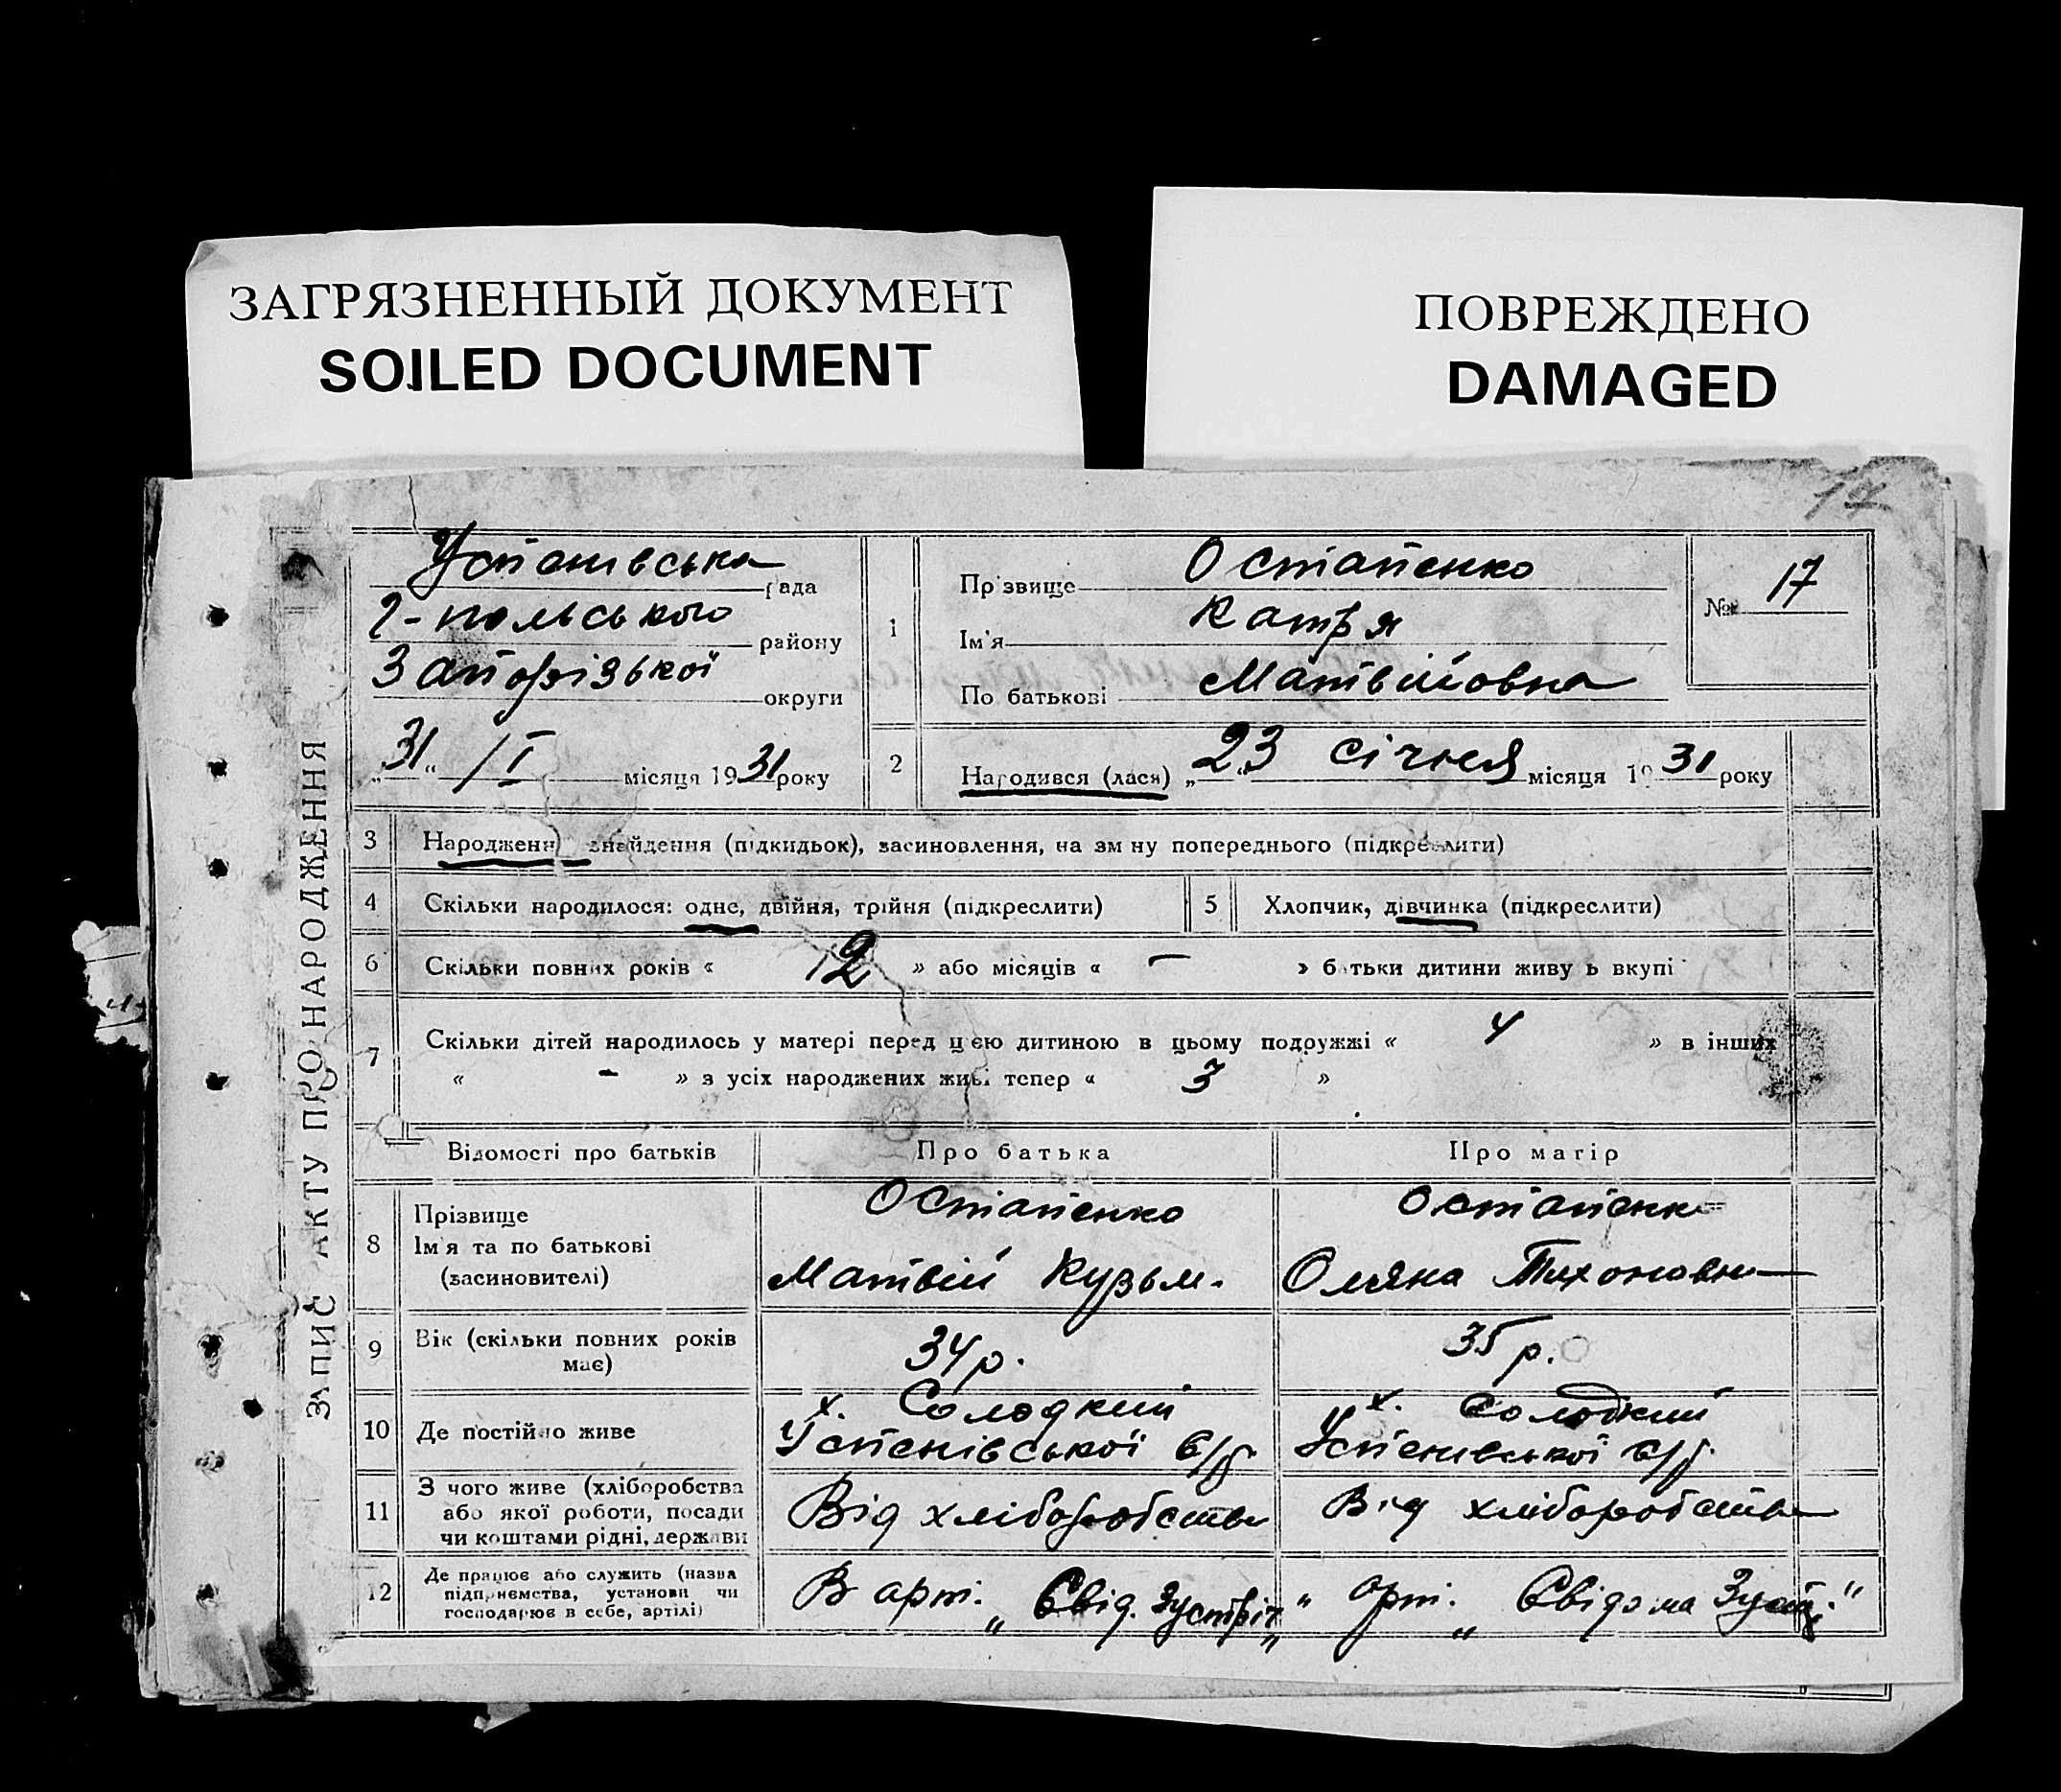 ЗАГРЯЗНЕННЫЙ ДОКУМЕНТ
SOILED DOCUMENT
ПОВРЕЖДЕНО
DAMAGED
17
ЗАПИС АКТУ ПРО НАРОДЖЕННЯ
Успенівська рада
Г-польського району
Запорізької округи
„31“ /I місяця 1931 року
1
Прізвище Остапенко
Ім'я Катря
По батькові Матвійовна
№ 17
2
Народився (лася) „23“ січня місяця 1931 року
3 Народження, знайдення (підкидьок), засиновлення, на зміну попереднього (підкреслити)
4 Скільки народилося: одне, двійня, трійня (підкреслити)
5 Хлопчик, дівчинка (підкреслити)
6 Скільки повних років « 12 » або місяців « – » батьки дитини живуть вкупі
7 Скільки дітей народилось у матері перед цією дитиною в цьому подружжі « 4 » в інших
« – » з усіх народжених живі тепер « 3 »
Відомості про батьків Про батька Про матір
8 Прізвище
Ім'я та по батькові
(засиновителі)
Остапенко
Матвій Кузьм.
Остапенко
Оляна Тихоновна
9 Вік (скільки повних років
має)
34 р.
35 р.
10 Де постійно живе
х. Солодкий
Успенівської с/р.
х. Солодкий
Успенівської с/р.
11 З чого живе (хліборобства
або якої роботи, посади
чи коштами рідні, держави
Від хліборобства
Від хліборобства
12 Де працює або служить (назва
підприємства, установи чи
господарює в себе, артілі)
В арт. „Свід. Зустріч„
" арт. „Свідома Зустр."